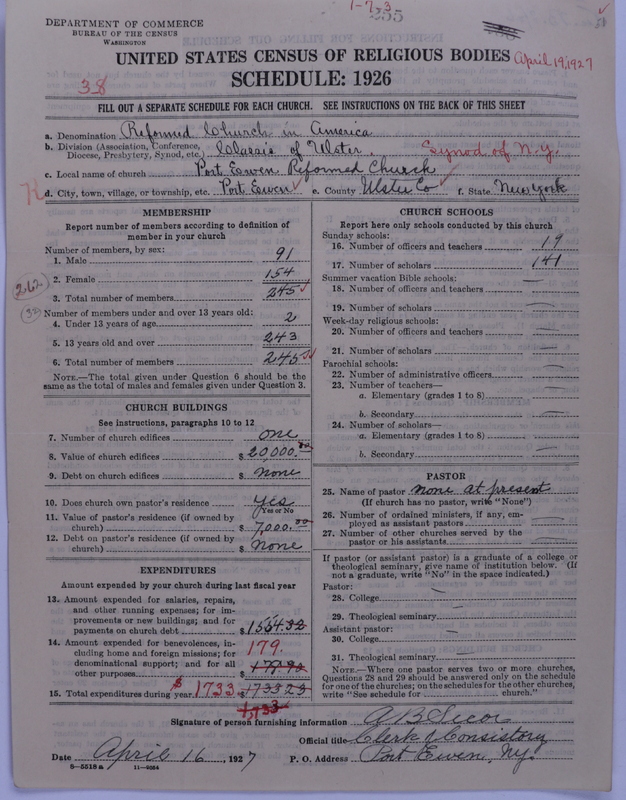 1-7-3
235
DEPARTMENT OF COMMERCE
BUREAU OF THE CENSUS
WASHINGTON
UNITED STATES CENSUS OF RELIGIOUS BODIES
April 19, 1927
SCHEDULE: 1926
38
FILL OUT A SEPARATE SCHEDULE FOR EACH CHURCH. SEE INSTRUCTIONS ON THE BACK OF THIS SHEET
a. Denomination Reformed Church in America
b. Division (Association, Conference, Diocese, Presbytery, Synod, etc.) Classis of Ulster Synod of N.Y.
c. Local name of church Port Ewen Reformed Church
d. City, town, village, or township, etc. Port Ewen e. County Ulster Co f. State New York
MEMBERSHIP
Report number of members according to definition of
member in your church
Number of members, by sex:
1. Male 91
2. Female 154
3. Total number of members 245
262
Number of members under and over 13 years old:
4. Under 13 years of age 2
5. 13 years old and over 243
6. Total number of members 245
NOTE.—The total given under Question 6 should be
same as the total of males and females given under Question 3.
CHURCH BUILDINGS
See instructions, paragraphs 10 to 12
7. Number of church edifices one
8. Value of church edifices $20,000.00
9. Debt on church edifices $ none
10. Does church own pastor's residence yes
Yes or No
11. Value of pastor's residence (if owned by
church) $7,000.00
12. Debt on pastor's residence (if owned by
church) $ none
EXPENDITURES
Amount expended by your church during last fiscal year
13. Amount expended for salaries, repairs,
and other running expenses; for im-
provements or new buildings; and for
payments on church debt $1554.32
14. Amount expended for benevolences, in-
cluding home and foreign missions; for
denominational support; and for all
other purposes $
179.
15. Total expenditures during year $1733. $1733 23
1,733
CHURCH SCHOOLS
Report here only schools conducted by this church
Sunday schools:
16. Number of officers and teachers 19
17. Number of scholars 141
Summer vacation Bible schools:
18. Number of officers and teachers —
19. Number of scholars —
Week-day religious schools:
20. Number of officers and teachers —
21. Number of scholars —
Parochial schools:
22. Number of administrative officers —
23. Number of teachers—
a. Elementary (grades 1 to 8) —
b. Secondary —
24. Number of scholars—
a. Elementary (grades 1 to 8) —
b. Secondary —
PASTOR
25. Name of pastor none at present
(If church has no pastor, write "None")
26. Number of ordained ministers, if any, em-
ployed as assistant pastors —
27. Number of other churches served by the
pastor or his assistants —
If pastor (or assistant pastor) is a graduate of a college or
theological seminary, give name of institution below. (If
not a graduate, write "No" in the space indicated.)
Pastor:
28. College —
29. Theological seminary —
Assistant pastor:
30. College —
31. Theological seminary —
NOTE.—Where one pastor serves two or more churches,
Questions 28 and 29 should be answered only on the schedule
for one of the churches; on the schedules for the other churches,
write "See schedule for church."
Signature of person furnishing information A B Secor
Official title Clerk of Consistory
Date April 16, 1927 P. O. Address Port Ewen, N.Y.
8-5518 a 11-9064